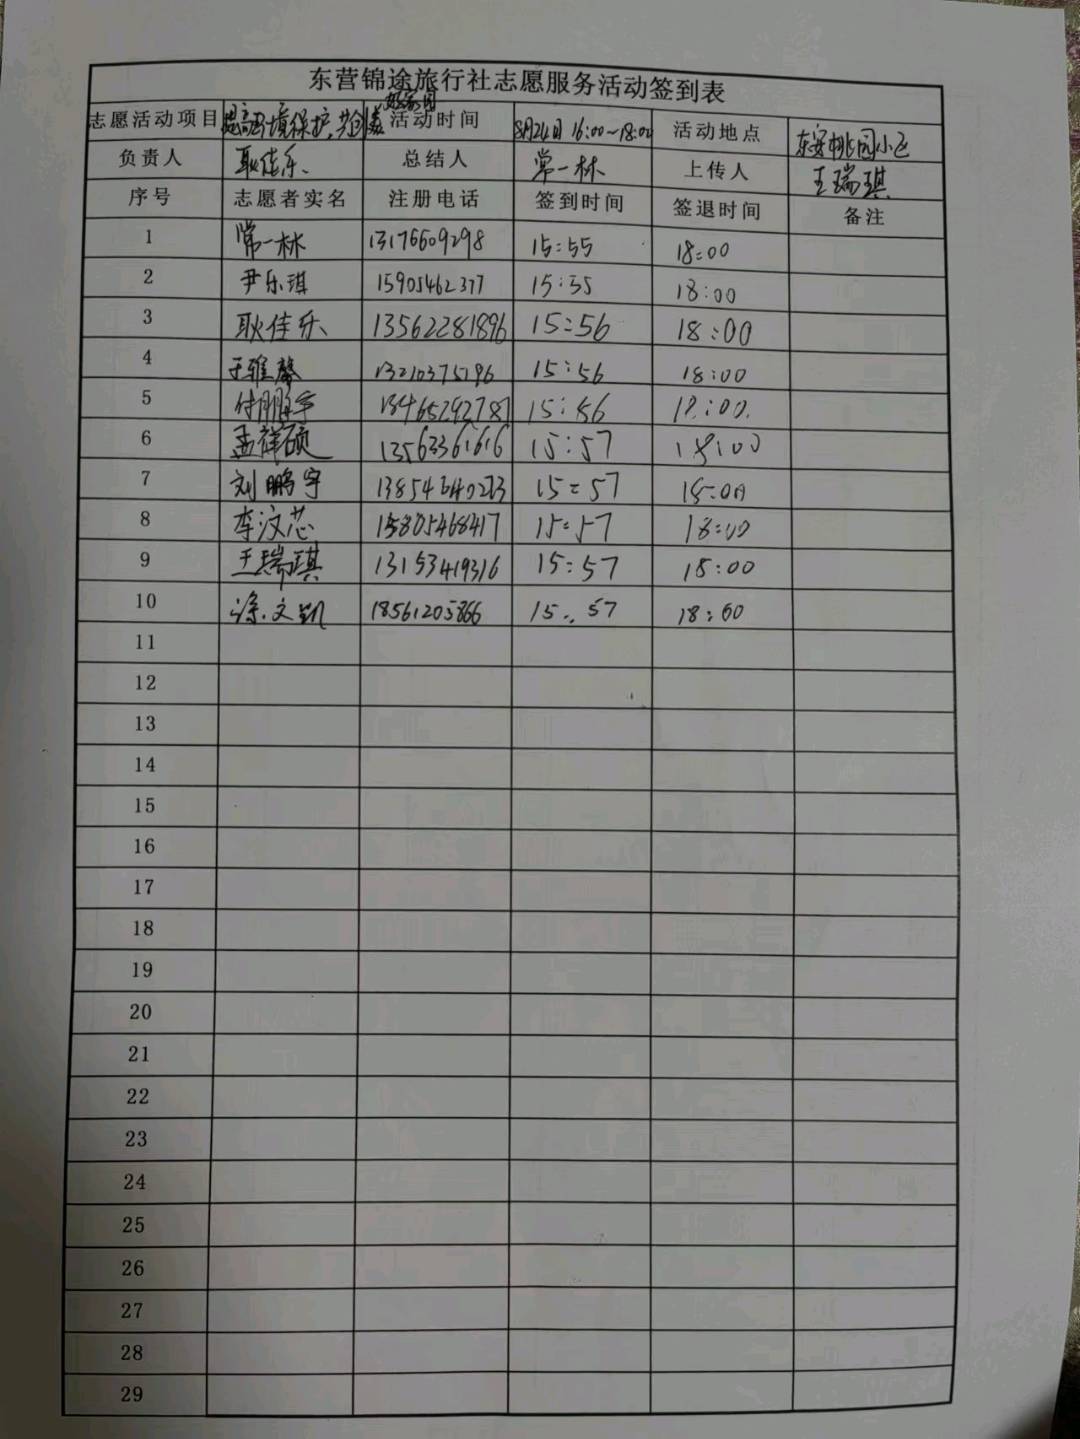 东营锦途旅行社志愿服务活动签到表
志愿活动项目 提高环境保护,共创美好家园 活动时间 8月24日 16:00~18:00 活动地点 东安桃园小区
负责人 耿佳乐 总结人 常一林 上传人 王瑞琪
序号 志愿者实名 注册电话 签到时间 签退时间 备注
1 常一林 13176609298 15:55 18:00
2 尹乐琪 15905462377 15:55 18:00
3 耿佳乐 13562281896 15:56 18:00
4 王雅馨 13210375796 15:56 18:00
5 付鹏宇 13465292787 15:56 18:00
6 孟祥硕 13563361616 15:57 18:00
7 刘鹏宇 15:57 18:00
8 李汶芯 15805468417 15:57 18:00
9 王瑞琪 13153419316 15:57 18:00
10 涂文凯 18561205866 15:57 18:00
11
12
13
14
15
16
17
18
19
20
21
22
23
24
25
26
27
28
29